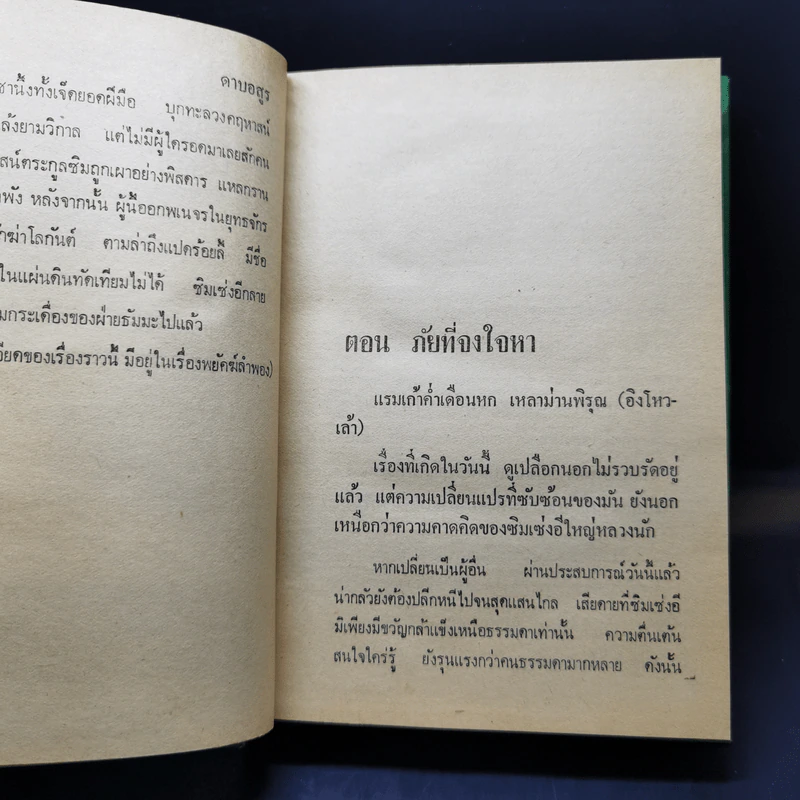 ดาบอสูร
ชานึ้งทั้งเจ็ดยอดฝีมือ บุกทะลวงคฤหาสน์
ลังยามวิกาล แต่ไม่มีผู้ใดรอดมาเลยสักคน
สน์ตระกูลซิมถูกเผาอย่างพิสดาร แหลกราน
พัง หลังจากนั้น ผู้นี้ออกพเนจรในยุทธจักร
ฆ่าโลกันต์ ตามล่าถึงแปดร้อยลี้ มีชื่อ
ในแผ่นดินทัดเทียมไม่ได้ ซิมเซ่งอีกลาย
มกระเดื่องของฝ่ายธัมมะไปแล้ว
อียดของเรื่องราวนี้ มีอยู่ในเรื่องพยัคฆ์ลำพอง)
ตอน ภัยที่จงใจหา
แรมเก้าค่ำเดือนหก เหลาม่านพิรุณ (อิงโหว-
เล้า)
เรื่องที่เกิดในวันนี้ ดูเปลือกนอกไม่รวบรัดอยู่
แล้ว แต่ความเปลี่ยนแปรที่ซับซ้อนของมัน ยังนอก
เหนือกว่าความคาดคิดของซิมเซ่งอีใหญ่หลวงนัก
หากเปลี่ยนเป็นผู้อื่น ผ่านประสบการณ์วันนี้แล้ว
น่ากลัวยังต้องปลีกหนีไปจนสุดแสนไกล เสียดายที่ซิมเซ่งอี
มิเพียงมีขวัญกล้าแข็งเหนือธรรมดาเท่านั้น ความตื่นเต้น
สนใจใคร่รู้ ยังรุนแรงกว่าคนธรรมดามากหลาย ดังนั้น